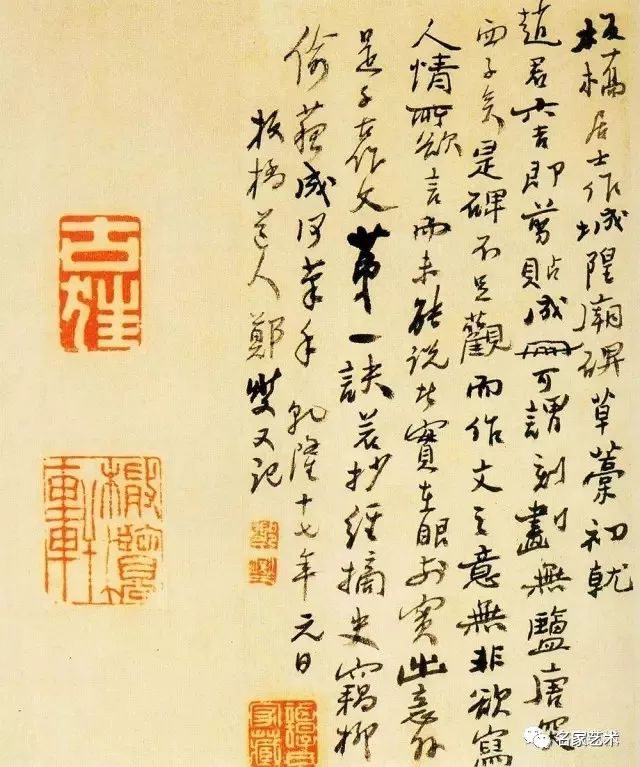 板橋居士作城隍廟碑草藁初就
趙君六吉即剪貼成冊可謂刻畫無鹽唐突
西子矣是碑不足觀而作文之意無非欲寫
人情所欲言而未能說者實在眼前實出意外
是千古作文第一訣若抄經摘史竊柳
偷蘇成何筆手乾隆十七年元日
板橋道人鄭燮又記
名家艺术